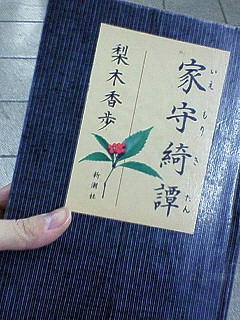 家守綺譚
いえもりきたん
梨木香歩
新潮社